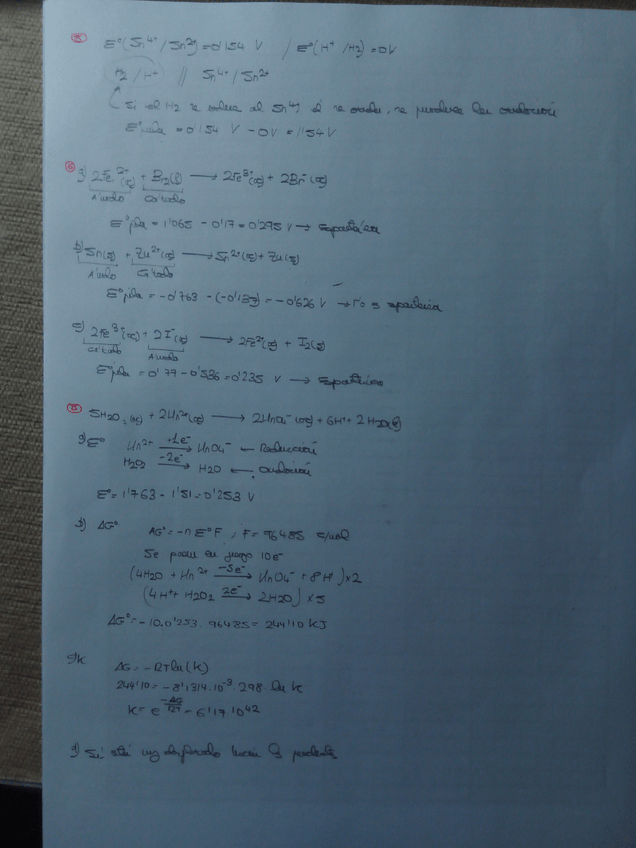 E°(Sn⁴⁺/Sn²⁺)=0'154 V / E°(H⁺/H₂)=0V
H₂/H⁺ // Sn⁴⁺/Sn²⁺
Si el H₂ se al Sn⁴⁺, él se oxida, se produce la oxidación
E°pila = 0'154 V - 0V = 1'54 V
6
a) 2Fe²⁺(aq) + Br₂(l) → 2Fe³⁺(aq) + 2Br⁻(aq)
Ánodo Cátodo
E°pila = 1'065 - 0'77 = 0'295 V → espontánea
b) Sn(s) + Zn²⁺(aq) → Sn²⁺(aq) + Zn(s)
Ánodo Cátodo
E°pila = -0'763 - (-0'137) = -0'626 V → No es espontánea
c) 2Fe³⁺(aq) + 2I⁻(aq) → 2Fe²⁺(aq) + I₂(s)
Cátodo Ánodo
E°pila = 0'77 - 0'536 = 0'235 V → espontánea
5H₂O₂(aq) + 2Mn²⁺(aq) → 2MnO₄⁻(aq) + 6H⁺ + 2H₂O(l)
a) E° Mn²⁺ → MnO₄⁻ ← Reducción
H₂O₂ -2e⁻→ H₂O ← Oxidación
E° = 1'763 - 1'51 = 0'253 V
b) ΔG°
ΔG° = -n E° F , F = 96485 C/mol
Se ponen en juego 10e⁻
(4H₂O + Mn²⁺ -5e⁻→ MnO₄⁻ + 8H⁺) × 2
(4H⁺ + H₂O₂ 2e⁻→ 2H₂O) × 5
ΔG° = -10·0'253·96485 = 244'10 KJ
c) K
ΔG = -RTln(K)
244'10 = -8'314·10⁻³·298·ln K
K = e^(-ΔG/RT) = 6'17·10⁴²
d) Sí, está muy desplazado hacia